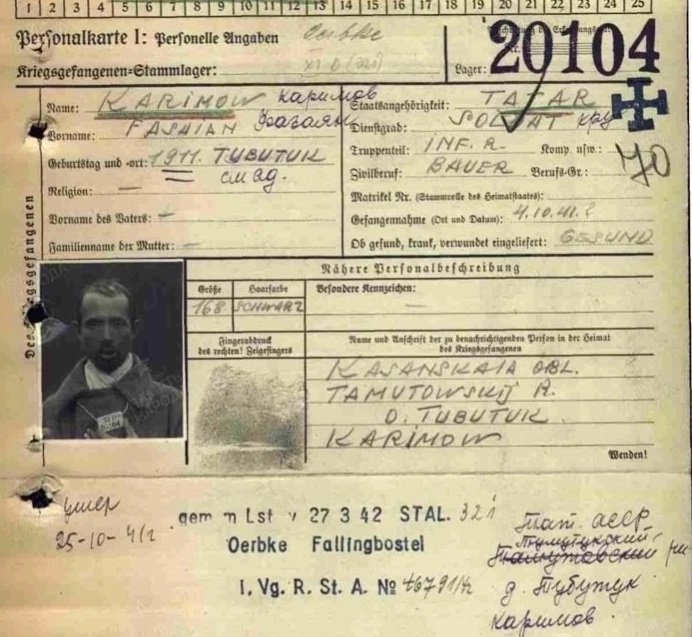 1 2 3 4 5 6 7 8 9 10 11 12 13 14 15 16 17 18 19 20 21 22 23 24 25
Personalkarte I: Personelle Angaben
Oerbke
Kriegsgefangenen-Stammlager: XI D (321)
Lager: 20104
Des Kriegsgefangenen
Name: KARIMOW Каримов
Vorname: FASAIAN Фазаян
Geburtstag und -ort: 1911. TUBUTUK
Religion: —
Vorname des Vaters: —
Familienname der Mutter: —
Staatsangehörigkeit: TATAR
Dienstgrad: SOLDAT
Truppenteil: INF. R. Komp. usw.:
Zivilberuf: BAUER Berufs-Gr.:
Matrikel Nr. (Stammrolle des Heimatstaates):
Gefangennahme (Ort und Datum): 4.10.41.
Ob gesund, krank, verwundet eingeliefert: GESUND
70
Nähere Personalbeschreibung
Größe Haarfarbe Besondere Kennzeichen:
168 SCHWARZ —
Fingerabdruck
des rechten! Zeigefingers
Name und Anschrift der zu benachrichtigenden Person in der Heimat
des Kriegsgefangenen
KASANSKAIA OBL.
TAMUTOWSKIJ R.
D. TUBUTUK
KARIMOW
Wenden!
умер
25-10-41г
gem m Lst v 27 3 42 STAL. 321
Oerbke Fallingbostel
I. Vg. R. St. A. №
Тат. АССР
д. Тубутук
Каримов